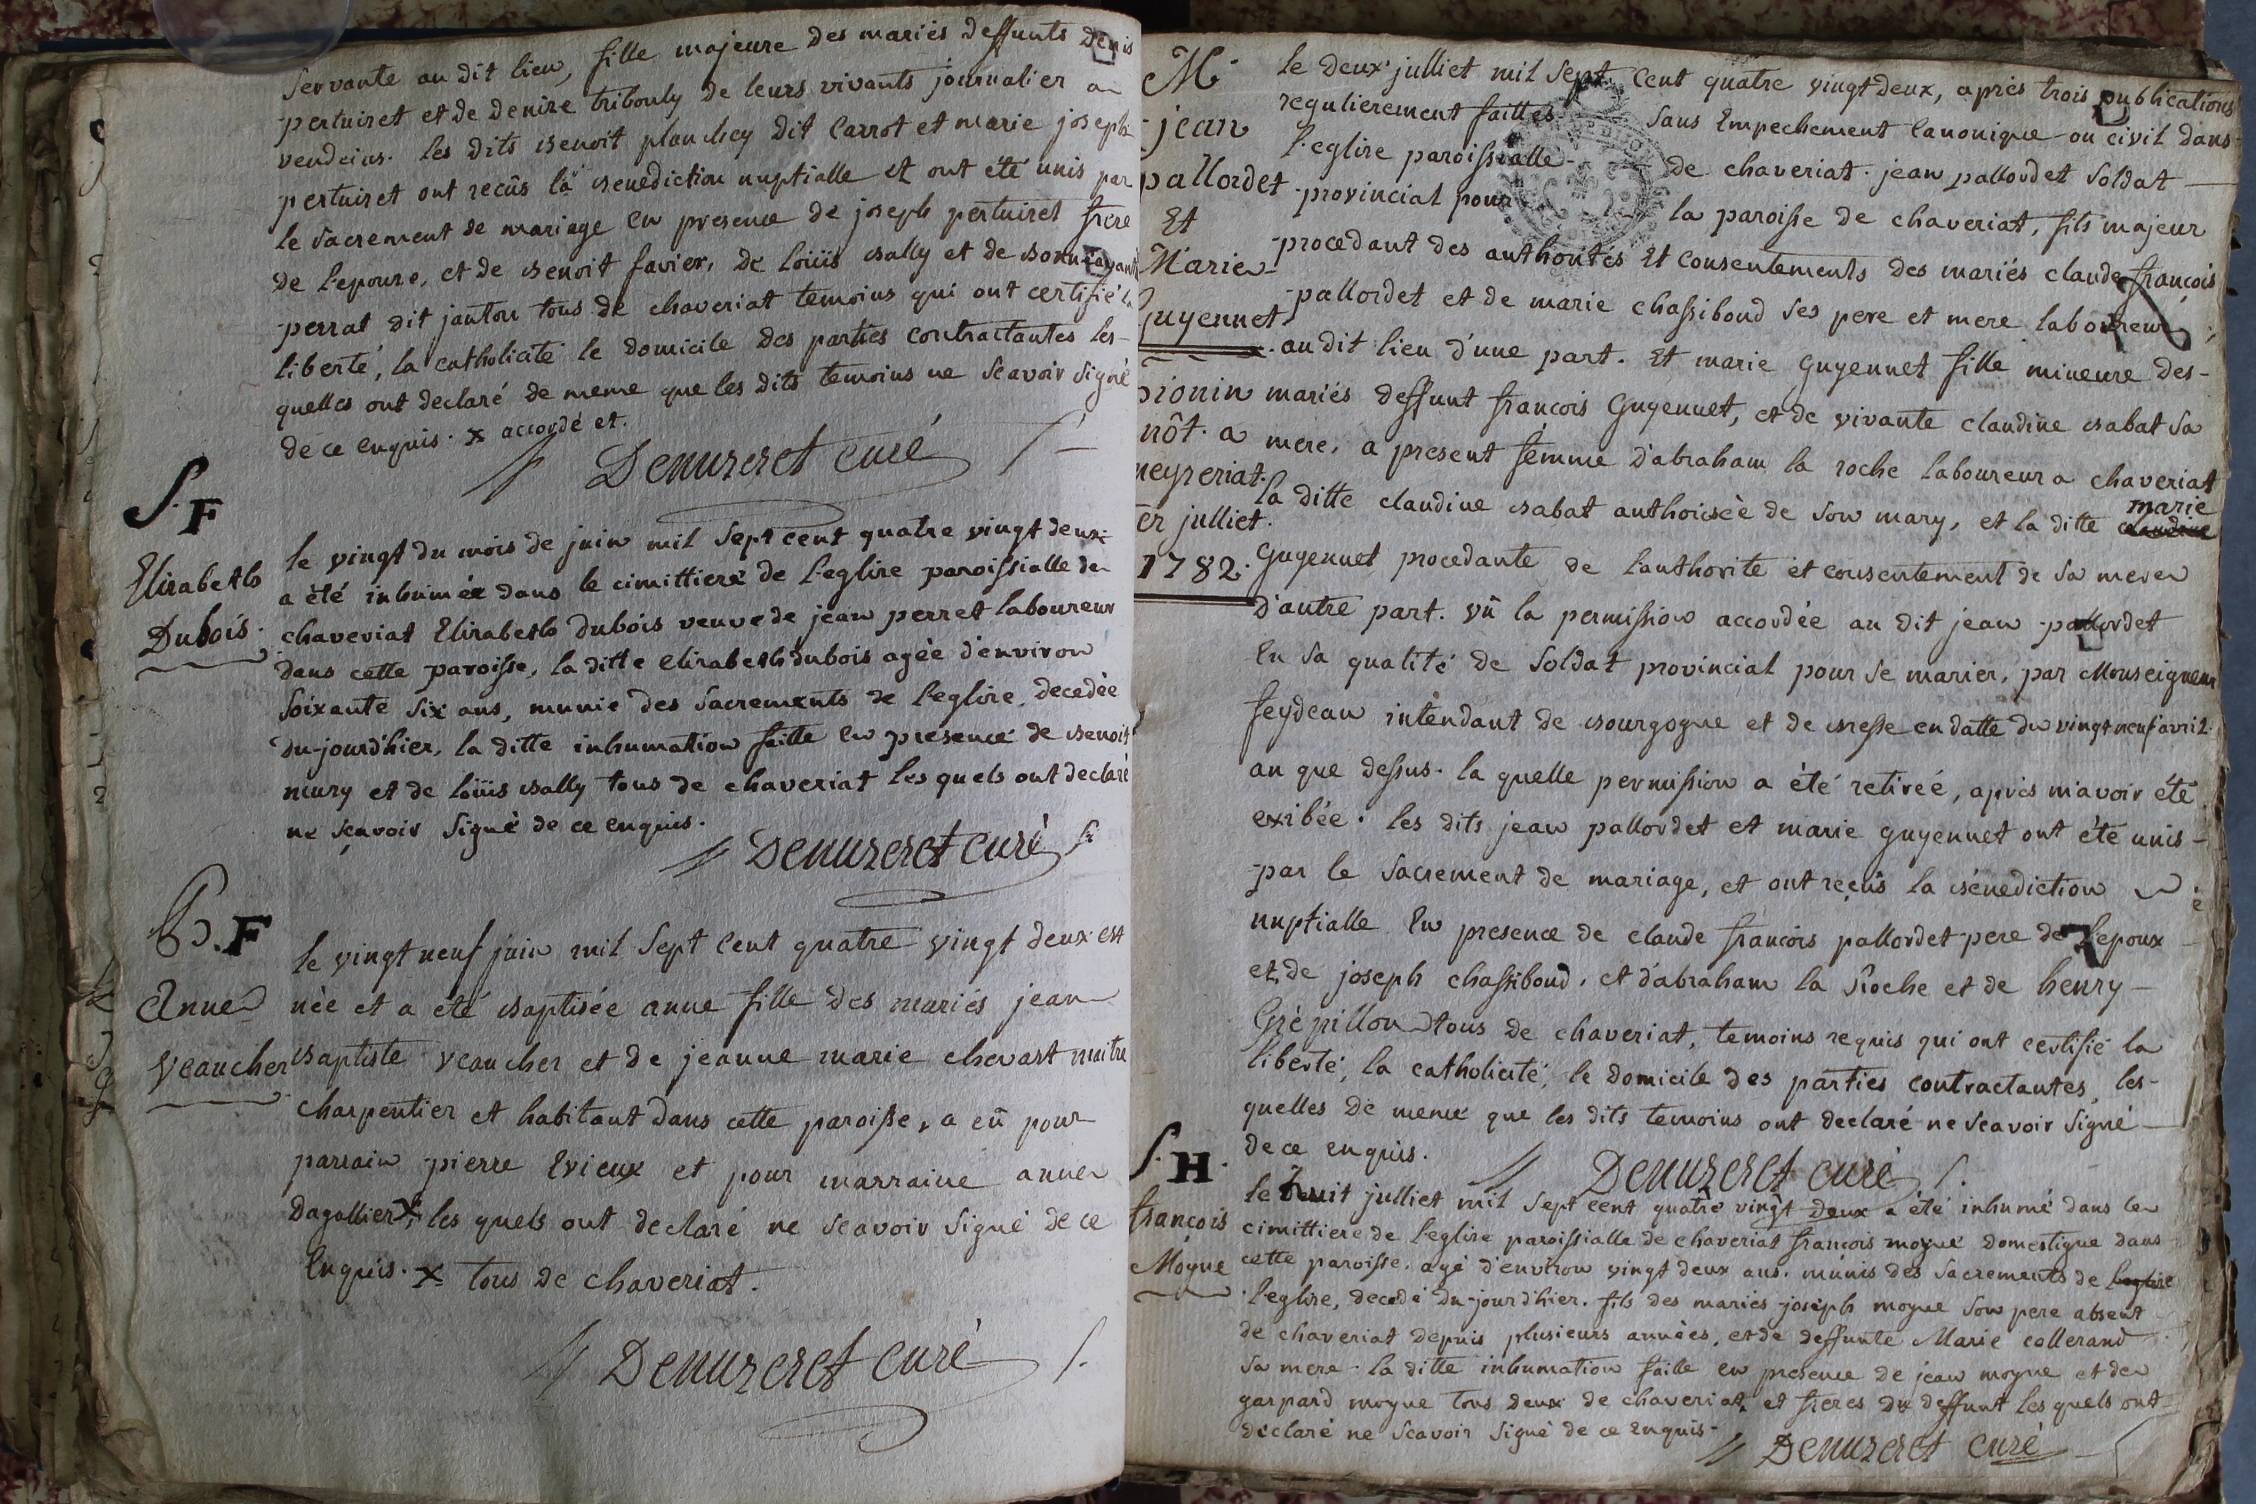 servante au dit lieu, fille majeure des mariés deffunts denis
pertuiret et de denize tribouly de leurs vivants journalier a
vendeins. les dits benoit planchey dit carrot et marie joseph
pertuiret ont recûs la benediction nuptialle et ont été unis par
le sacrement de mariage en presence de joseph pertuiret frere
de l'epouse, et de benoit favier, de loüis bally et de
perrat dit janton tous de chaveriat temoins qui ont certifié la
liberté, la catholicité le domicile des parties contractantes les-
quelles ont declaré de meme que les dits temoins ne scavoir signé
de ce enquis. x accordé et.
Denuzeret curé
S. F
Elizabeth
Dubois.
le vingt du mois de juin mil sept cent quatre vingt deux
a été inhumée dans le cimittiere de l'eglise paroissialle de
chaveriat Elizabeth dubois veuve de jean perret laboureur
dans cette paroisse, la ditte elizabeth dubois agée d'environ
soixante six ans, munie des sacrements de l'eglise, decedée
du-jourd'hier, la ditte inhumation faitte en presence de benoit
mury et de loüis bally tous de chaveriat les quels ont declaré
ne sçavoir signé de ce enquis.
Denuzeret curé
B. F
Anne
Veaucher
le vingt neuf juin mil sept cent quatre vingt deux est
née et a été baptisée anne fille des mariés jean
baptiste veaucher et de jeanne marie chevast maitre
charpentier et habitant dans cette paroisse, a eû pour
parrain pierre Evieux et pour marraine anne
dagallier x, les quels ont declaré ne scavoir signé de ce
enquis. x tous de chaveriat.
Denuzeret curé
M.
jean
pallordet
Et
Marie
Guyennet
pionin
nôt. a
meyzeriat.
er julliet.
1782.
le deux julliet mil sept cent quatre vingt deux, après trois publications
regulierement faittes sans Empechement canonique ou civil dans
l'eglise paroissialle de chaveriat. jean pallordet soldat
provincial pour la paroisse de chaveriat, fils majeur
procedant des authorités Et consentements des mariés claude françois
pallordet et de marie chassiboud ses pere et mere laboureur
au dit lieu d'une part. Et marie Guyennet fille mineure des-
mariés deffunt françois Guyennet, et de vivante claudine babat sa
mere, a present femme d'abraham la roche laboureur a chaveriat
la ditte claudine babat authorisée de son mary, et la ditte claudine marie
Guyennet procedante de l'authorité et consentement de sa mere
d'autre part. vû la permission accordée au dit jean pallordet
En sa qualité de soldat provincial pour se marier, par Monseigneur
feydeau intendant de bourgogne et de bresse en datte du vingt neuf avril
an que dessus. la quelle permission a été retirée, après m'avoir été
exibée. les dits jean pallordet et marie guyennet ont été unis
par le sacrement de mariage, et ont reçûs la bénediction
nuptialle En presence de claude françois pallordet pere de l'epoux
et de joseph chassiboud, et d'abraham la Roche et de henry
Grépillon tous de chaveriat, temoins requis qui ont certifié la
liberté, la catholicité, le domicile des parties contractantes, les-
quelles de meme que les dits temoins ont declaré ne scavoir signé
de ce enquis.
Denuzeret curé
S. H.
françois
Moyne
le huit julliet mil sept cent quatre vingt deux a été inhumé dans le
cimittiere de l'eglise paroissialle de chaveriat françois moyne domestique dans
cette paroisse, agé d'environ vingt deux ans. munis des sacrements de l'eglise
l'eglise, decedé du-jourd'hier. fils des mariés joseph moyne son pere absent
de chaveriat depuis plusieurs années, et de deffunte Marie collerand
sa mere. la ditte inhumation faitte en presence de jean moyne et de
gaspard moyne tous deux de chaveriat, et freres du deffunt les quels ont
declaré ne scavoir signé de ce enquis.
Denuzeret curé